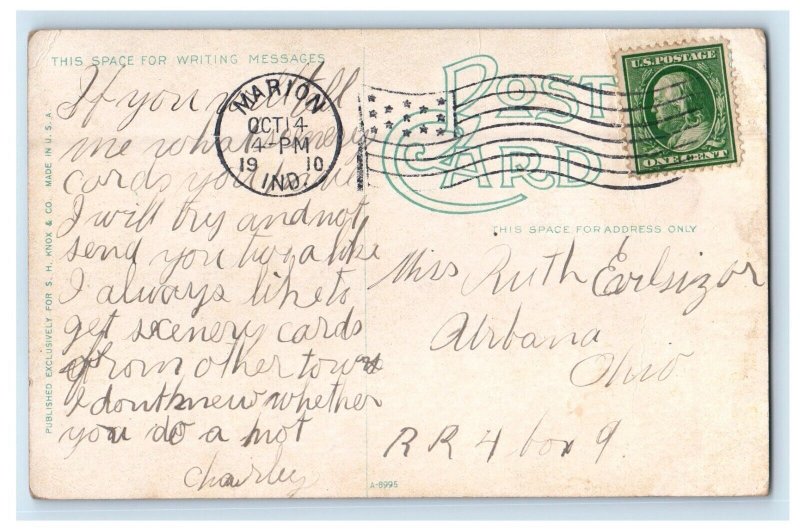 THIS SPACE FOR WRITING MESSAGES
If you will tell
me what scenery
cards you have
I will try and not
send you two alike
I always like to
get scenery cards
from other towns
I dont knew whether
you do a not
Charley
PUBLISHED EXCLUSIVELY FOR S. H. KNOX & CO. MADE IN U.S.A.
MARION
OCT 14
4-PM
19 10
IND.
POST CARD
U.S. POSTAGE
ONE CENT
THIS SPACE FOR ADDRESS ONLY
Miss Ruth Evilsizor
Urbana
Ohio
RR 4 box 9.
A-8995